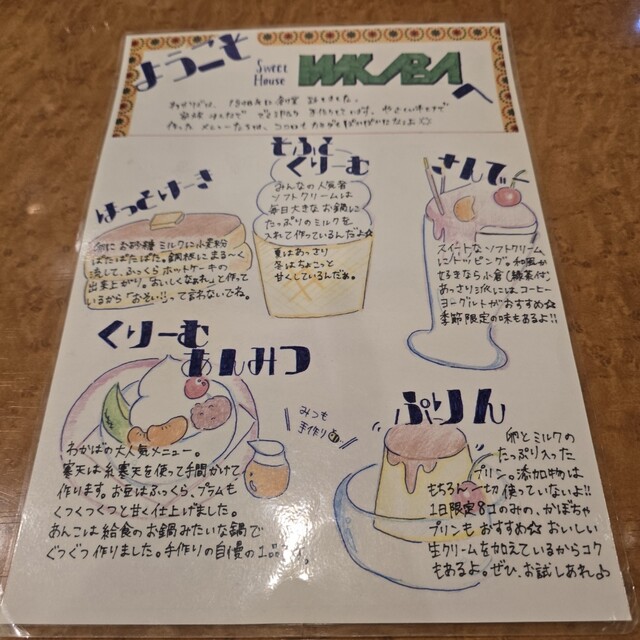 ようこそ
Sweet
House
WAKABA
へ
ほっとけーき
卵にお砂糖 ミルクに小麦粉
ぱたぱたぱた。銅板にまる〜く
流して、ふっくらホットケーキの
出来上がり。「おいしくなぁれ」と作って
いるから「おそい…」って言わないでね。
そふと
くりーむ
みんなの人気者
ソフトクリームは
毎日大きなお鍋に
たっぷりのミルクを
入れて作っているんだよ☆
夏はあっさり
冬はちょこっと
甘くしているんだぁ。
さんで
スイートなソフトクリーム
にトッピング。和風が
好きなら小倉(緑茶付)
あっさり派にはコーヒー
ヨーグルトがおすすめ☆
季節限定の味もあるよ!!
くりーむ
あんみつ
みつも
手作り
わかばの大人気メニュー。
寒天は糸寒天を使って手間かけて
作ります。お豆はふっくら、プラムも
くつくつくつと甘く仕上げました。
あんこは給食のお鍋みたいな鍋で
ぐつぐつ作りました。手作りの自慢の1品
ぷりん
卵とミルクの
たっぷり入った
プリン。添加物は
もちろん一切使っていないよ!!
1日限定8コのみの、かぼちゃ
プリンもおすすめ☆ おいしい
生クリームを加えているからコク
もあるよ。ぜひ、お試しあれ♪